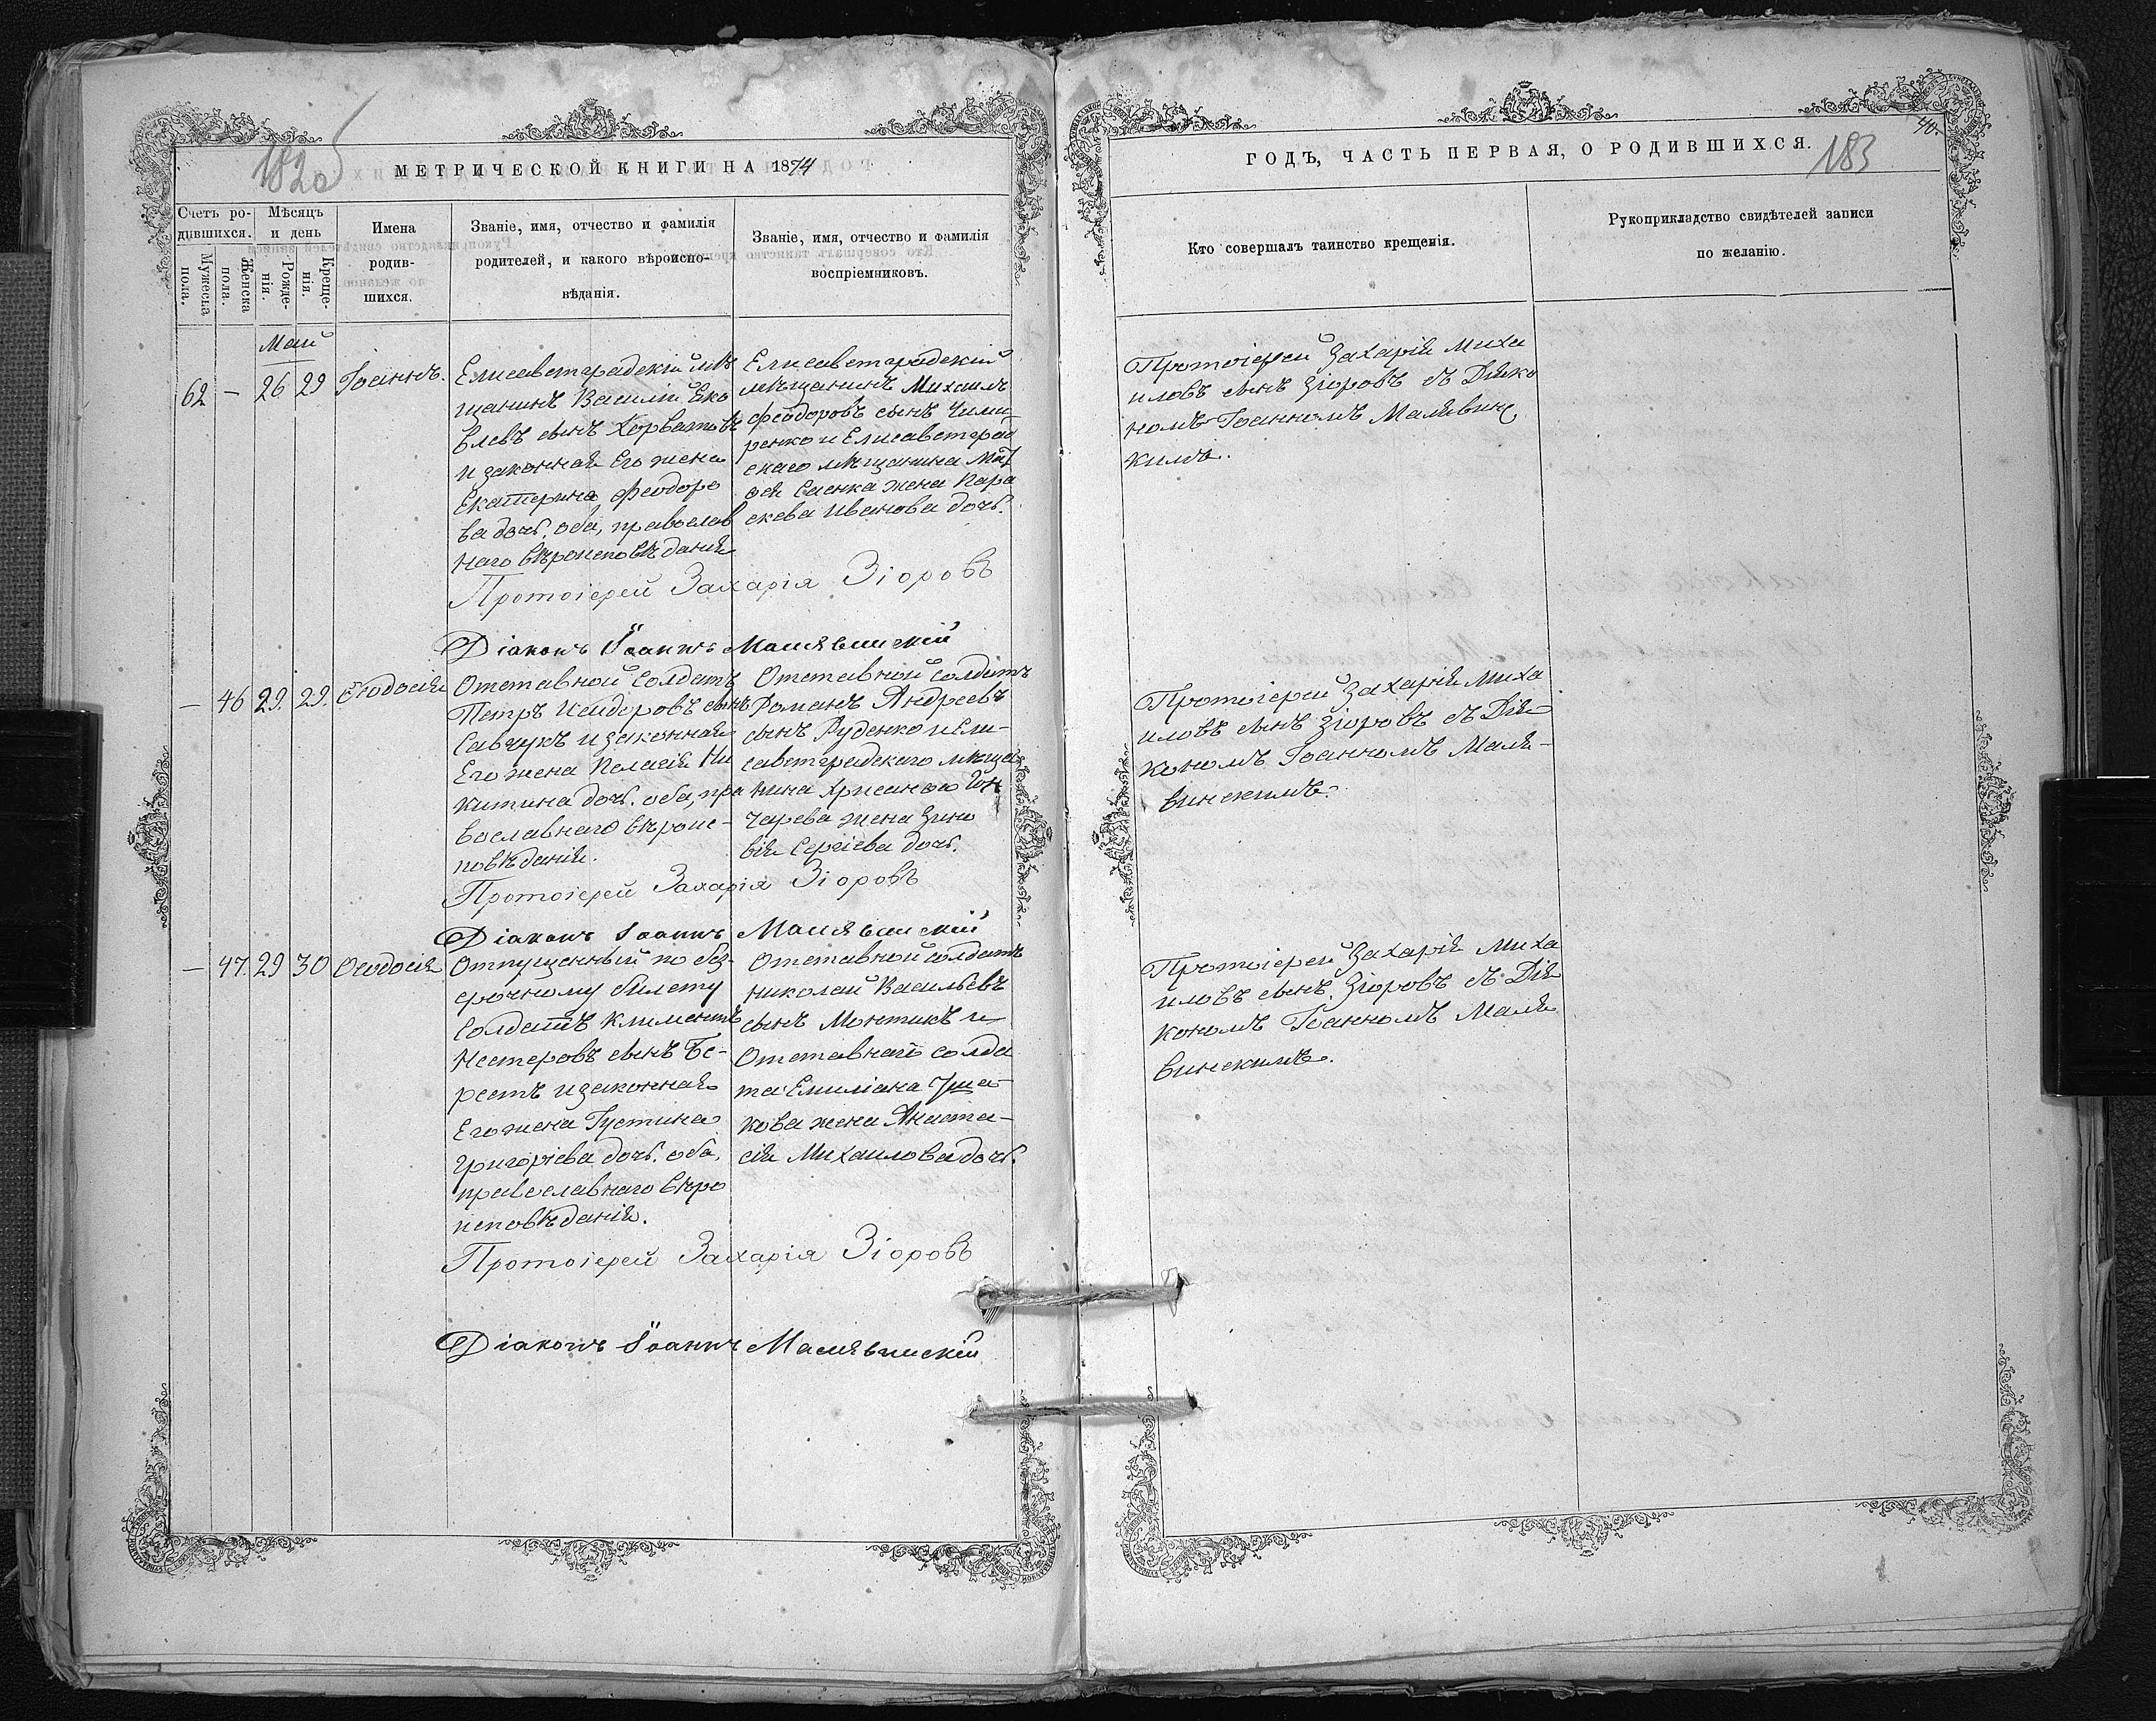 182об
МЕТРИЧЕСКОЙ КНИГИ НА 1874
Счетъ ро-
дившихся.
Мѣсяцъ
и день
Мужеска
пола.
Женска
пола.
Рожде-
нія.
Креще-
нія.
Имена
родив-
шихся.
Званіе, имя, отчество и фамилія
родителей, и какого вѣроиспо-
вѣданія.
Званіе, имя, отчество и фамилія
воспріемниковъ.
Май
62 — 26 29 Іоаннъ.
Елисаветградскій мѣ
щанинъ Василій Яко
влевъ сынъ Хорватовъ
и законная Его жена
Екатерина Феодоро
ва дочь. оба, православ
наго вѣроисповѣданія
Елисаветградскій
мѣщанинъ Михаилъ
Феодоровъ сынъ Чими-
ренко и Елисаветград
скаго мѣщанина Мат
ѳея Саенка жена Пара
скева Иванова дочь.
Протоіерей Захарія Зіоровъ
Діаконъ Іоаннъ Малявинскій
— 46 29. 29. Ѳеодосія
Отставной солдатъ
Петръ Исидоровъ сынъ
Савчукъ и законная
Его жена Пелагія Ни
китина дочь. оба, пра
вославнаго вѣроис-
повѣданія.
Отставной солдатъ
Романъ Андреевъ
сынъ Руденко и Ели-
саветградскаго мѣща
нина Хрисанфа Гон
чарева жена Зино
вія Сергіева дочь.
Протоіерей Захарія Зіоровъ
Діаконъ Іоаннъ Малявинскій
— 47. 29 30 Ѳеодосія
Отпущенный по без-
срочному билету
солдатъ Климентъ
Нестеровъ сынъ Бе-
рестъ и законная
Его жена Іустина
Григоріева дочь. оба,
православнаго вѣро
исповѣданія.
Отставной солдатъ
Николай Васильевъ
сынъ Монтикъ и
Отставнаго солда
та Емиліана Уша-
кова жена Анаста-
сія Михаилова дочь.
Протоіерей Захарія Зіоровъ
Діаконъ Іоаннъ Малявинскій
40.
ГОДЪ, ЧАСТЬ ПЕРВАЯ, О РОДИВШИХСЯ.
183
Кто совершалъ таинство крещенія.
Рукоприкладство свидѣтелей записи
по желанію.
Протоіерей Захарія Миха
иловъ сынъ Зіоровъ съ Діяко
номъ Іоанномъ Малявинс
кимъ.
Протоіерей Захарія Миха
иловъ сынъ Зіоровъ съ Дія-
кономъ Іоанномъ Маля-
винскимъ.
Протоіерей Захарія Миха
иловъ сынъ Зіоровъ съ Дія
кономъ Іоанномъ Маля
винскимъ.